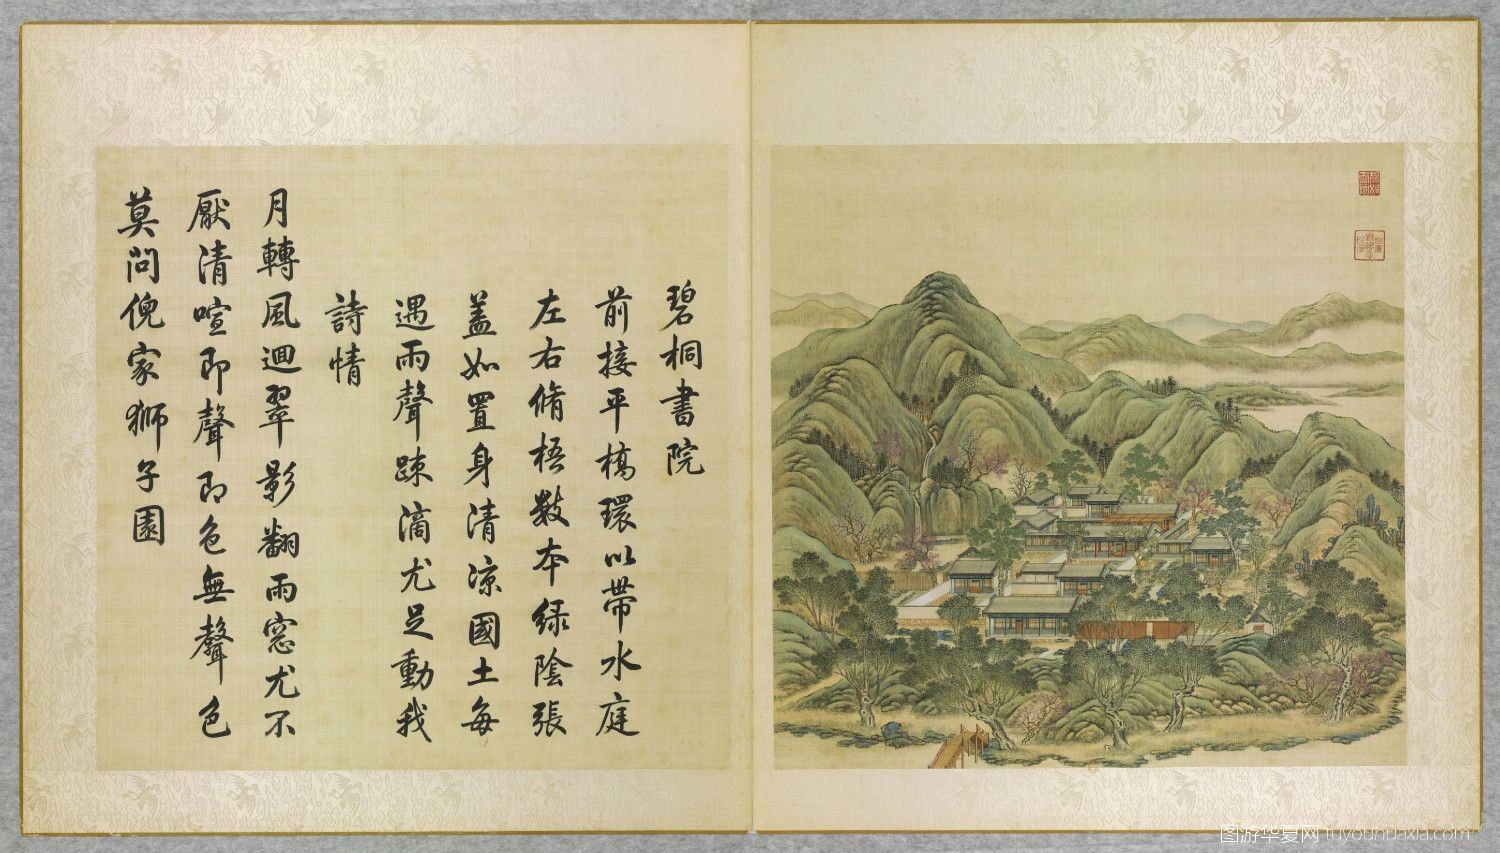 碧桐書院
前接平橋環以帶水庭
左右脩梧數本綠陰張
蓋如置身清涼國土每
遇雨聲踈滴尤足動我
詩情
月轉風迴翠影翻雨窓尤不
厭清喧即聲即色無聲色
莫問倪家獅子園
图游华夏网 tuyouhuaxia.com